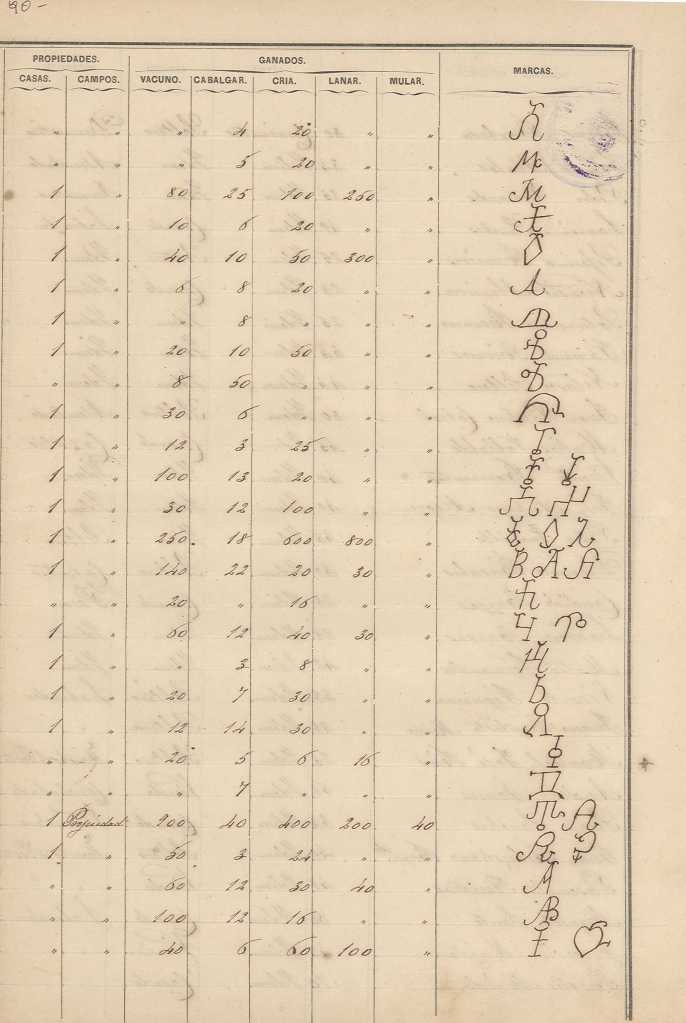 90 -
PROPIEDADES. GANADOS. MARCAS.
CASAS. CAMPOS. VACUNO. CABALGAR. CRIA. LANAR. MULAR.
" " " 4 20 " "
" " " 5 20 " "
1 " 80 25 100 250 "
1 " 10 6 20 " "
1 " 40 10 50 300 "
1 " 6 8 20 " "
1 " " 8 " " "
1 " 20 10 50 " "
" " 8 50 " " "
1 " 30 6 " " "
1 " 12 3 25 " "
1 " 100 13 20 " "
1 " 30 12 100 " "
1 " 250 18 600 800 "
1 " 140 22 20 30 " B A
" " 20 " 16 " "
1 " 60 12 40 30 "
1 " " 3 8 " "
1 " 20 7 30 " "
1 " 12 14 30 " "
" " 20 5 6 16 "
" " " 7 " " "
1 Propiedad 900 40 400 200 40 A
1 " 50 3 24 " "
" " 60 12 30 40 "
" " 100 12 16 " "
" " 40 6 60 100 "